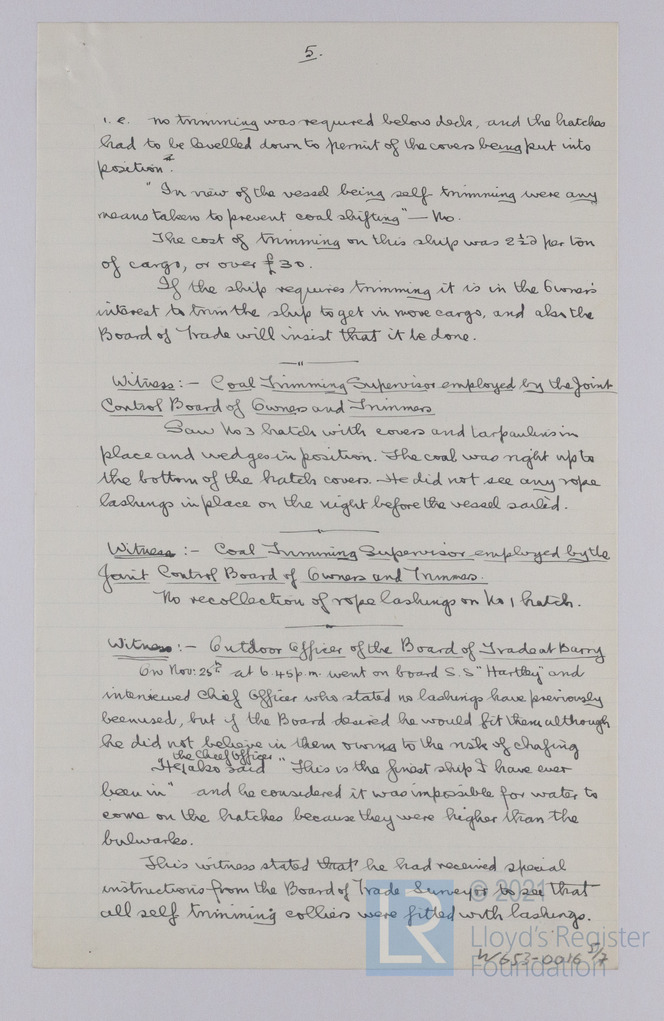 5.
i.e. no trimming was required below deck, and the hatches
had to be levelled down to permit of the covers being put into
position".
"In view of the vessel being self trimming were any
means taken to prevent coal shifting" — No.
The cost of trimming on this ship was 2½d per ton
of cargo, or over £30.
If the ship requires trimming it is in the Owner's
interest to trim the ship to get in more cargo, and also the
Board of Trade will insist that it be done.
Witness:- Coal Trimming Supervisor employed by the Joint
Control Board of Owners and Trimmers
Saw No 3 hatch with covers and tarpaulins in
place and wedges in position. The coal was right up to
the bottom of the hatch covers. He did not see any rope
lashings in place on the night before the vessel sailed.
Witness:- Coal Trimming Supervisor employed by the
Joint Control Board of Owners and Trimmers.
No recollection of rope lashings on No 1 hatch.
Witness:- Outdoor Officer of the Board of Trade at Barry
On Nov: 25th at 6.45 p.m. went on board S.S "Hartley" and
interviewed Chief Officer who stated no lashings have previously
been used, but if the Board desired he would fit them although
he did not believe in them owing to the risk of chafing
the Chief Officer
He also said "This is the finest ship I have ever
been in" and he considered it was impossible for water to
come on the hatches because they were higher than the
bulwarks.
This witness stated that he had received special
instructions from the Board of Trade Surveyor to see that
all self trimming colliers were fitted with lashings.
© 2021
LR
Lloyd's Register
Foundation
W653-0016 5/7